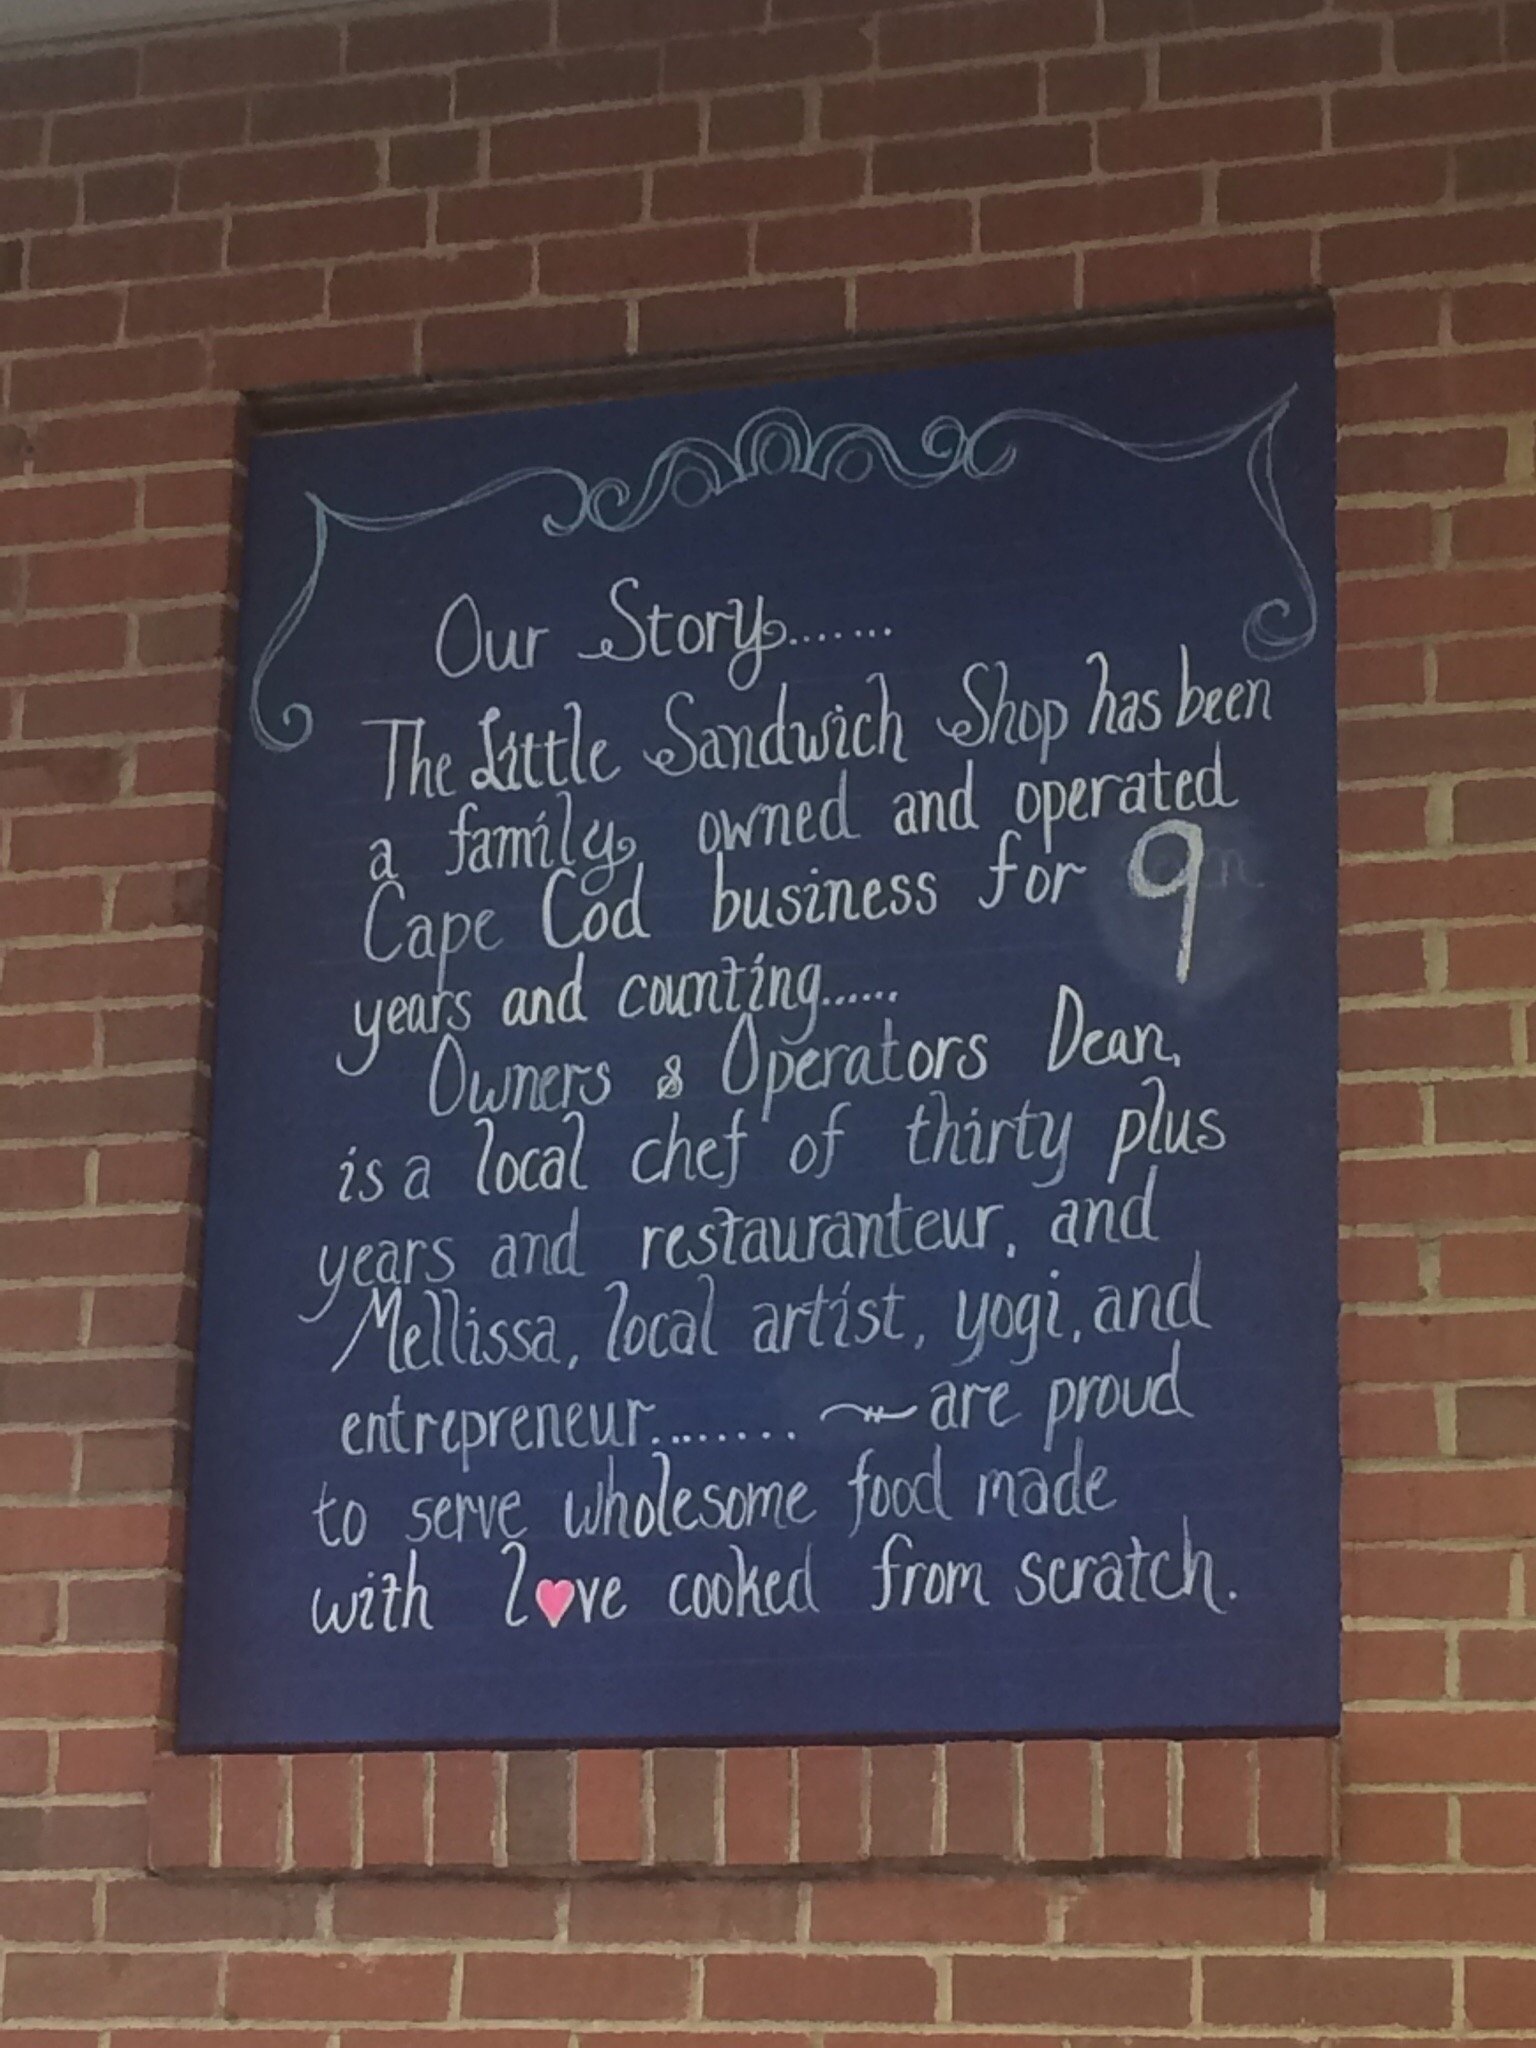 Our Story.......
The Little Sandwich Shop has been
a family owned and operated
Cape Cod business for 9
years and counting......
Owners & Operators Dean,
is a local chef of thirty plus
years and restauranteur, and
Mellissa, local artist, yogi, and
entrepreneur......... ~ are proud
to serve wholesome food made
with l♥ve cooked from scratch.